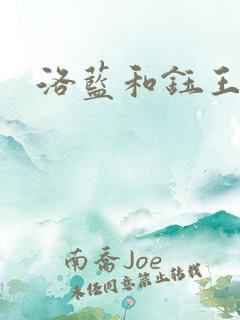 洛藍和鈺王
南喬Joe
未經同意禁止轉載